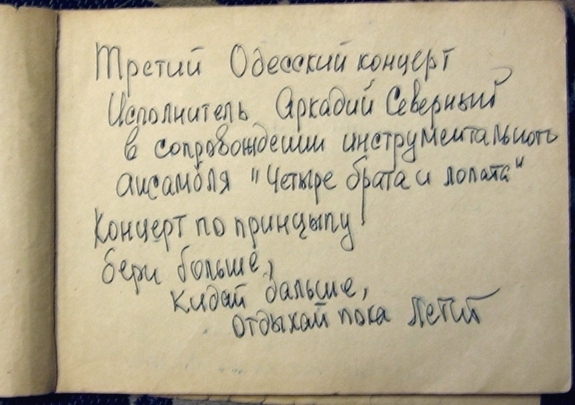 Третий Одесский концерт
Исполнитель Аркадий Северный
в сопровождении инструментального
ансамбля "Четыре брата и лопата"
Концерт по принцыпу
бери больше,
кидай дальше,
отдыхай пока летит